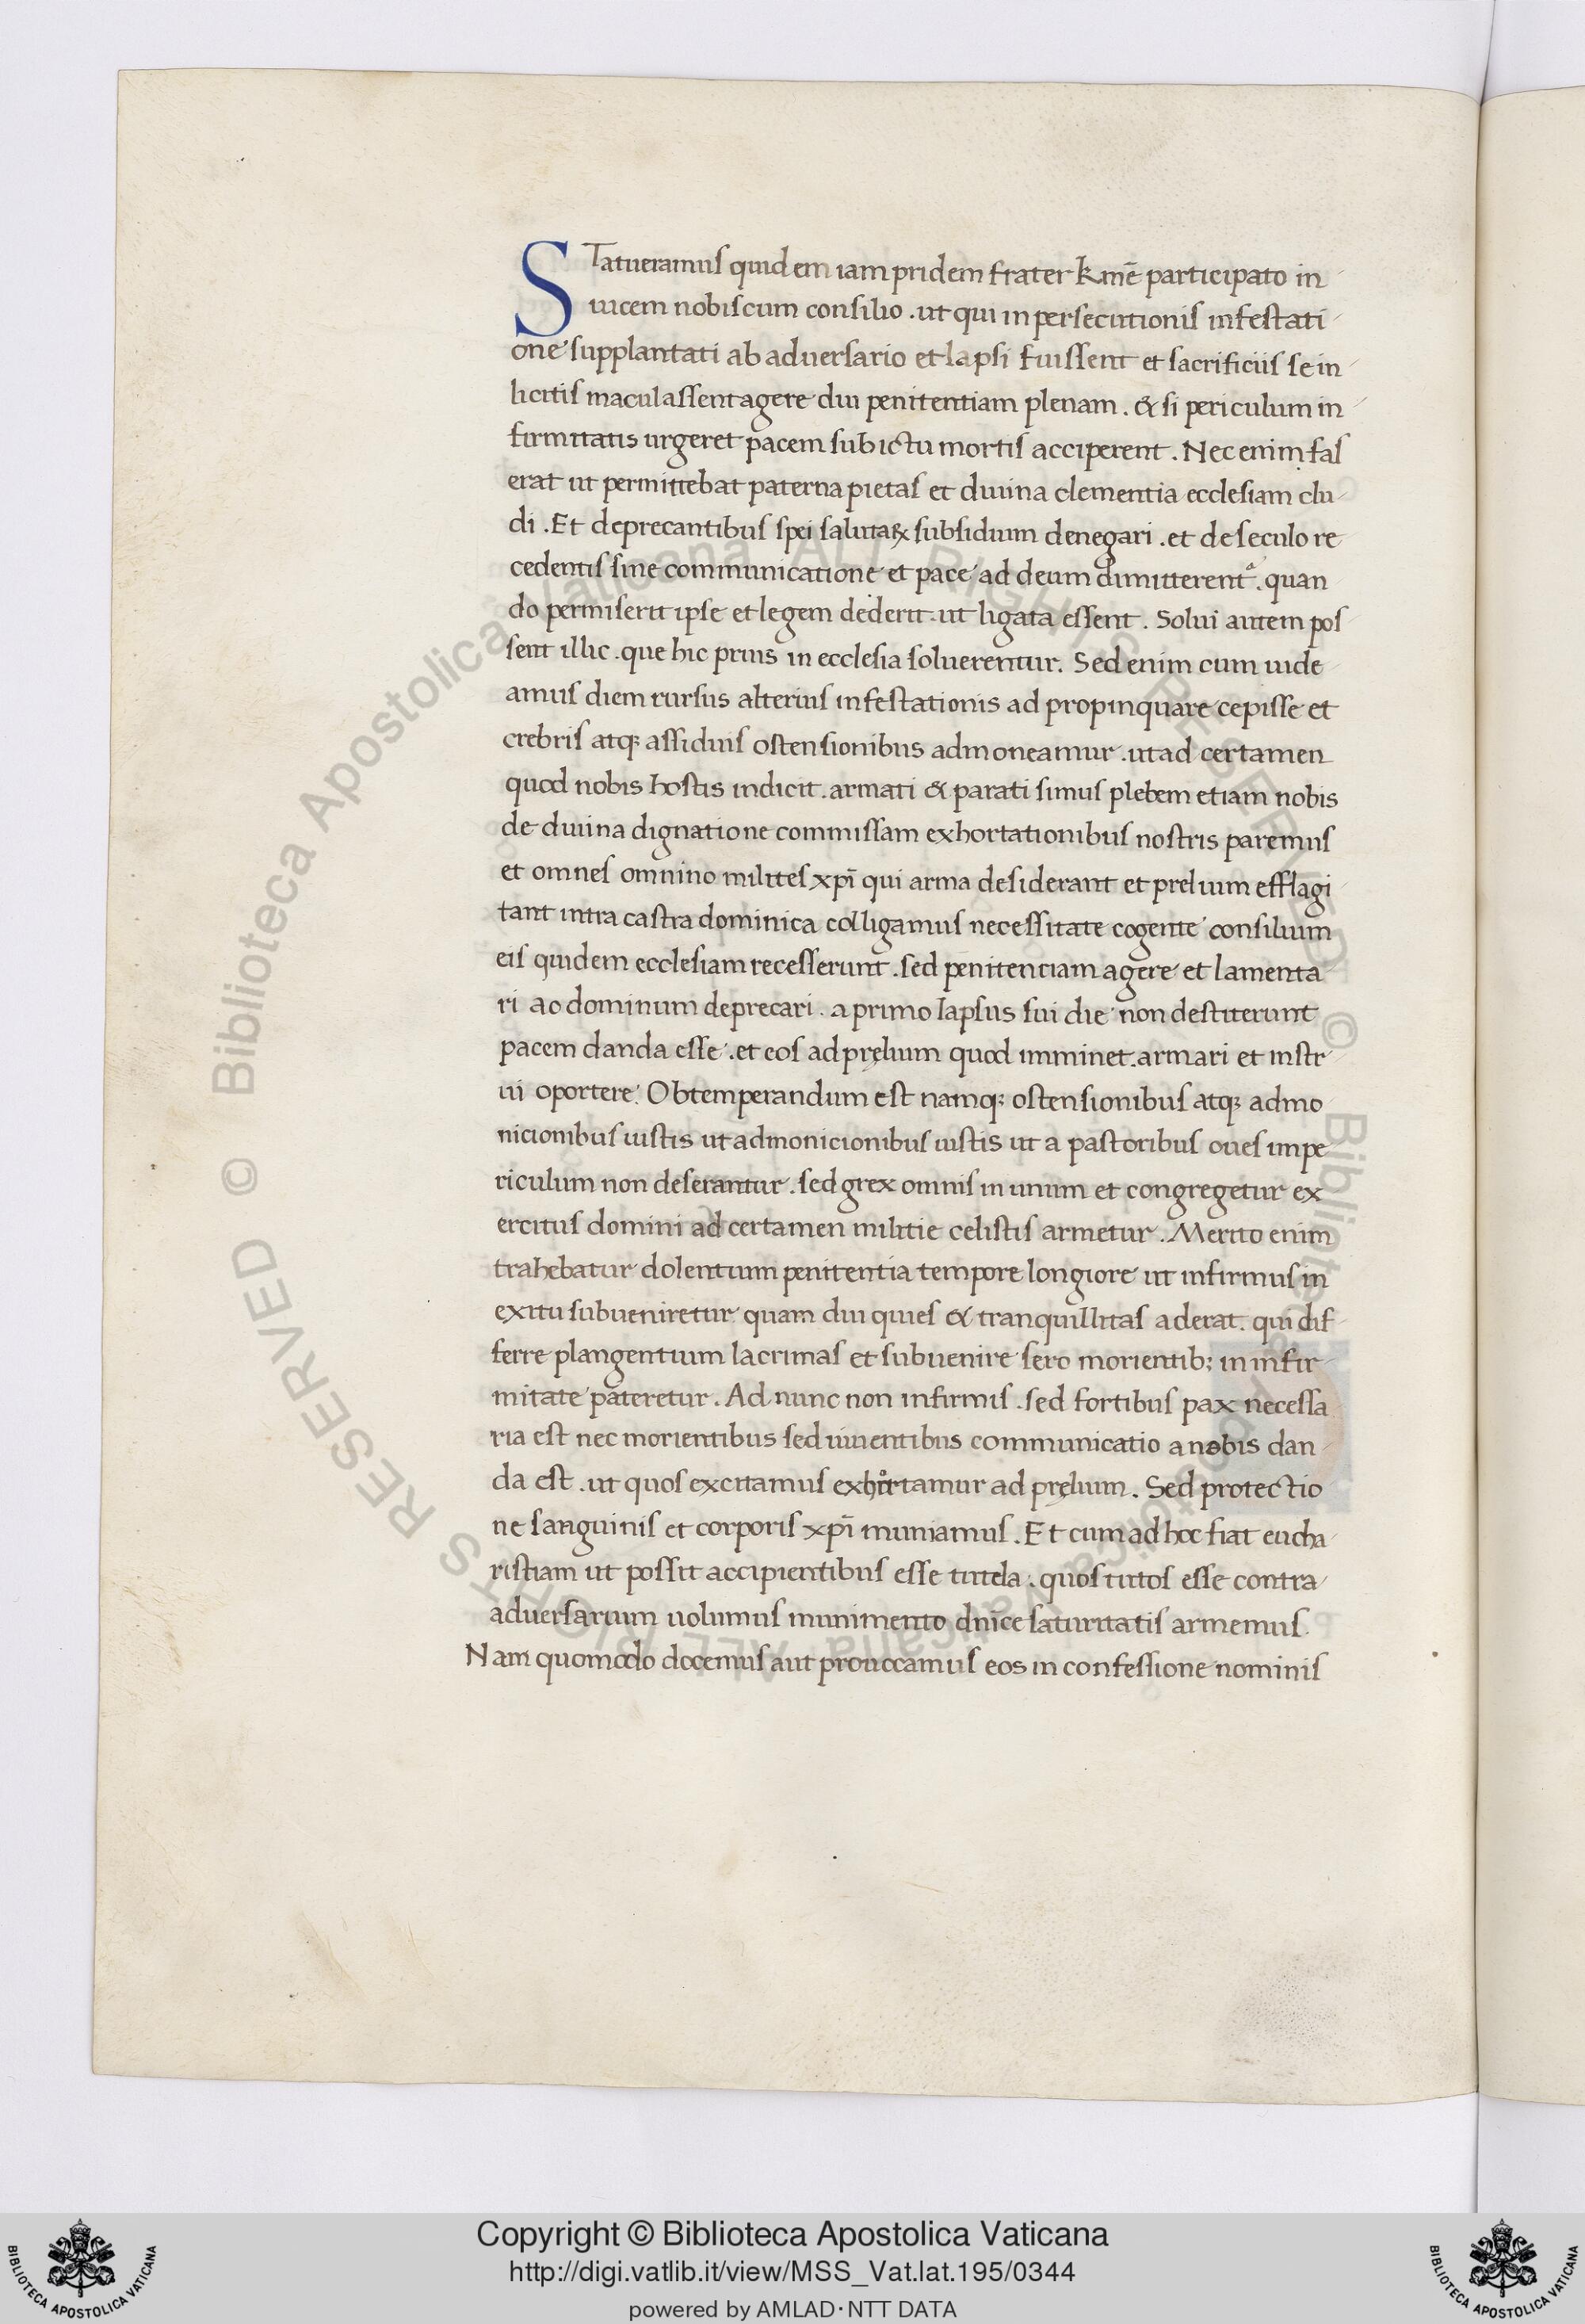 STatueramus quidem iam pridem frater kmē participato in
uicem nobiscum consilio . ut qui in persecutionis infestati
one supplantati ab aduersario et lapsi fuissent et sacrificiis se in
licitis maculassent agere diu penitentiam plenam . & si periculum in
firmitatis urgeret pacem sub ictu mortis acciperent . Nec enim fas
erat ut permittebat paterna pietas et diuina clementia ecclesiam clu
di . Et deprecantibus spei salutaꝝ subsidium denegari . et de seculo re
cedentis sine communicatione et pace ad deum dimitterent . quan
do permiserit ipse et legem dederit . ut ligata essent . Solui autem pos
sent illic . que hic prius in ecclesia soluerentur . Sed enim cum uide
amus diem rursus alterius infestationis ad propinquare cepisse et
crebris atq; assiduis ostensionibus admoneamur . ut ad certamen
quod nobis hostis indicit . armati & parati simus plebem etiam nobis
de diuina dignatione commissam exhortationibus nostris paremus
et omnes omnino milites xp̄i qui arma desiderant et prelium efflagi
tant intra castra dominica colligamus necessitate cogente consilium
eis quidem ecclesiam recesserunt . sed penitenciam agere et lamenta
ri ao dominum deprecari . a primo lapsus sui die non destiterunt
pacem danda esse . et eos ad pręlium quod imminet . armari et instr
ui oportere . Obtemperandum est namq; ostensionibus atq; admo
nicionibus iustis ut admonicionibus iustis ut a pastoribus oues impe
riculum non deserantur . sed grex omnis in unum et congregetur ex
ercitus domini ad certamen militie celistis armetur . Merito enim
trahebatur dolentium penitentia tempore longiore ut infirmus in
exitu subueniretur quam diu quies & tranquillitas aderat . qui dif
ferre plangentium lacrimas et subuenire sero morientib; in infir
mitate pateretur . Ad nunc non infirmis . sed fortibus pax necessa
ria est nec morientibus sed uiuentibus communicatio a nobis dan
da est . ut quos excitamus exhortamur ad pręlium . Sed protectio
ne sanguinis et corporis xp̄i muniamus . Et cum ad hoc fiat eucha
ristiam ut possit accipientibus esse tutela . quos tutos esse contra
aduersarium uolumus munimento dn̄ice saturitatis armemus .
Nam quomodo docemus aut prouocamus eos in confessione nominis
Copyright © Biblioteca Apostolica Vaticana
http://digi.vatlib.it/view/MSS_Vat.lat.195/0344
powered by AMLAD·NTT DATA
BIBLIOTECA APOSTOLICA VATICANA
BIBLIOTECA APOSTOLICA VATICANA
© Biblioteca Apostolica Vaticana ALL RIGHTS RESERVED
© Biblioteca Apostolica Vaticana ALL RIGHTS RESERVED